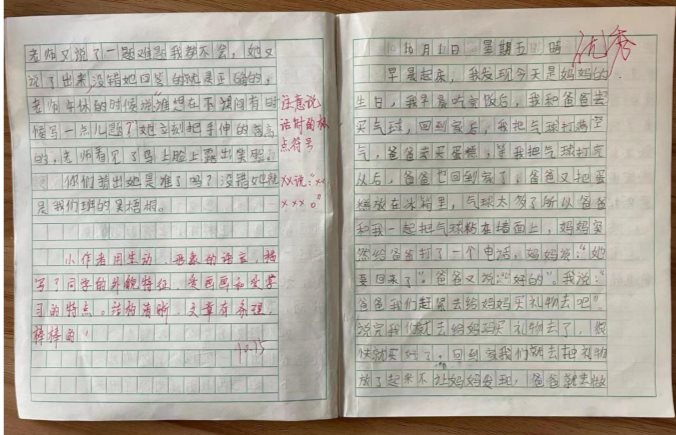 老师又说了一题难题我都不会，她又
说了出来，没错她回答的就是正确的，
老师午休的时候说"谁想在不饿间有时
候写一点儿题？"她立刻把手伸的高高
的，老师看见了马上脸上露出笑容。
你们猜出她是谁了吗？没错她就
是我们班的
注意说
话时的标
点符号
xx说："xx
xxx。"
小作者用生动、形象的语言，描
写了同学的外貌特征、爱画画和爱学
习的特点。结构清晰，文章有条理，
棒棒的！
10.15
优秀
10月1日 星期五 晴
早晨起床，我发现今天是妈妈的
生日，我早晨吃完饭后，我和爸爸去
买气球，回到家后，我把气球打满空
气，爸爸去买蛋糕，等我把气球打完
以后，爸爸也回到家了，爸爸又把蛋
糕放在冰箱里，气球太多了所以爸爸
和我一起把气球粘在墙面上，妈妈突
然给爸爸打了一个电话，妈妈说："她
要回来了"。爸爸又说："好的"。我说："
爸爸我们赶紧去给妈妈买礼物去吧"。
说完我们就去给妈妈买礼物去了，很
快就买好了。回到家我们就去把礼物
放了起来不让妈妈发现，爸爸就去做